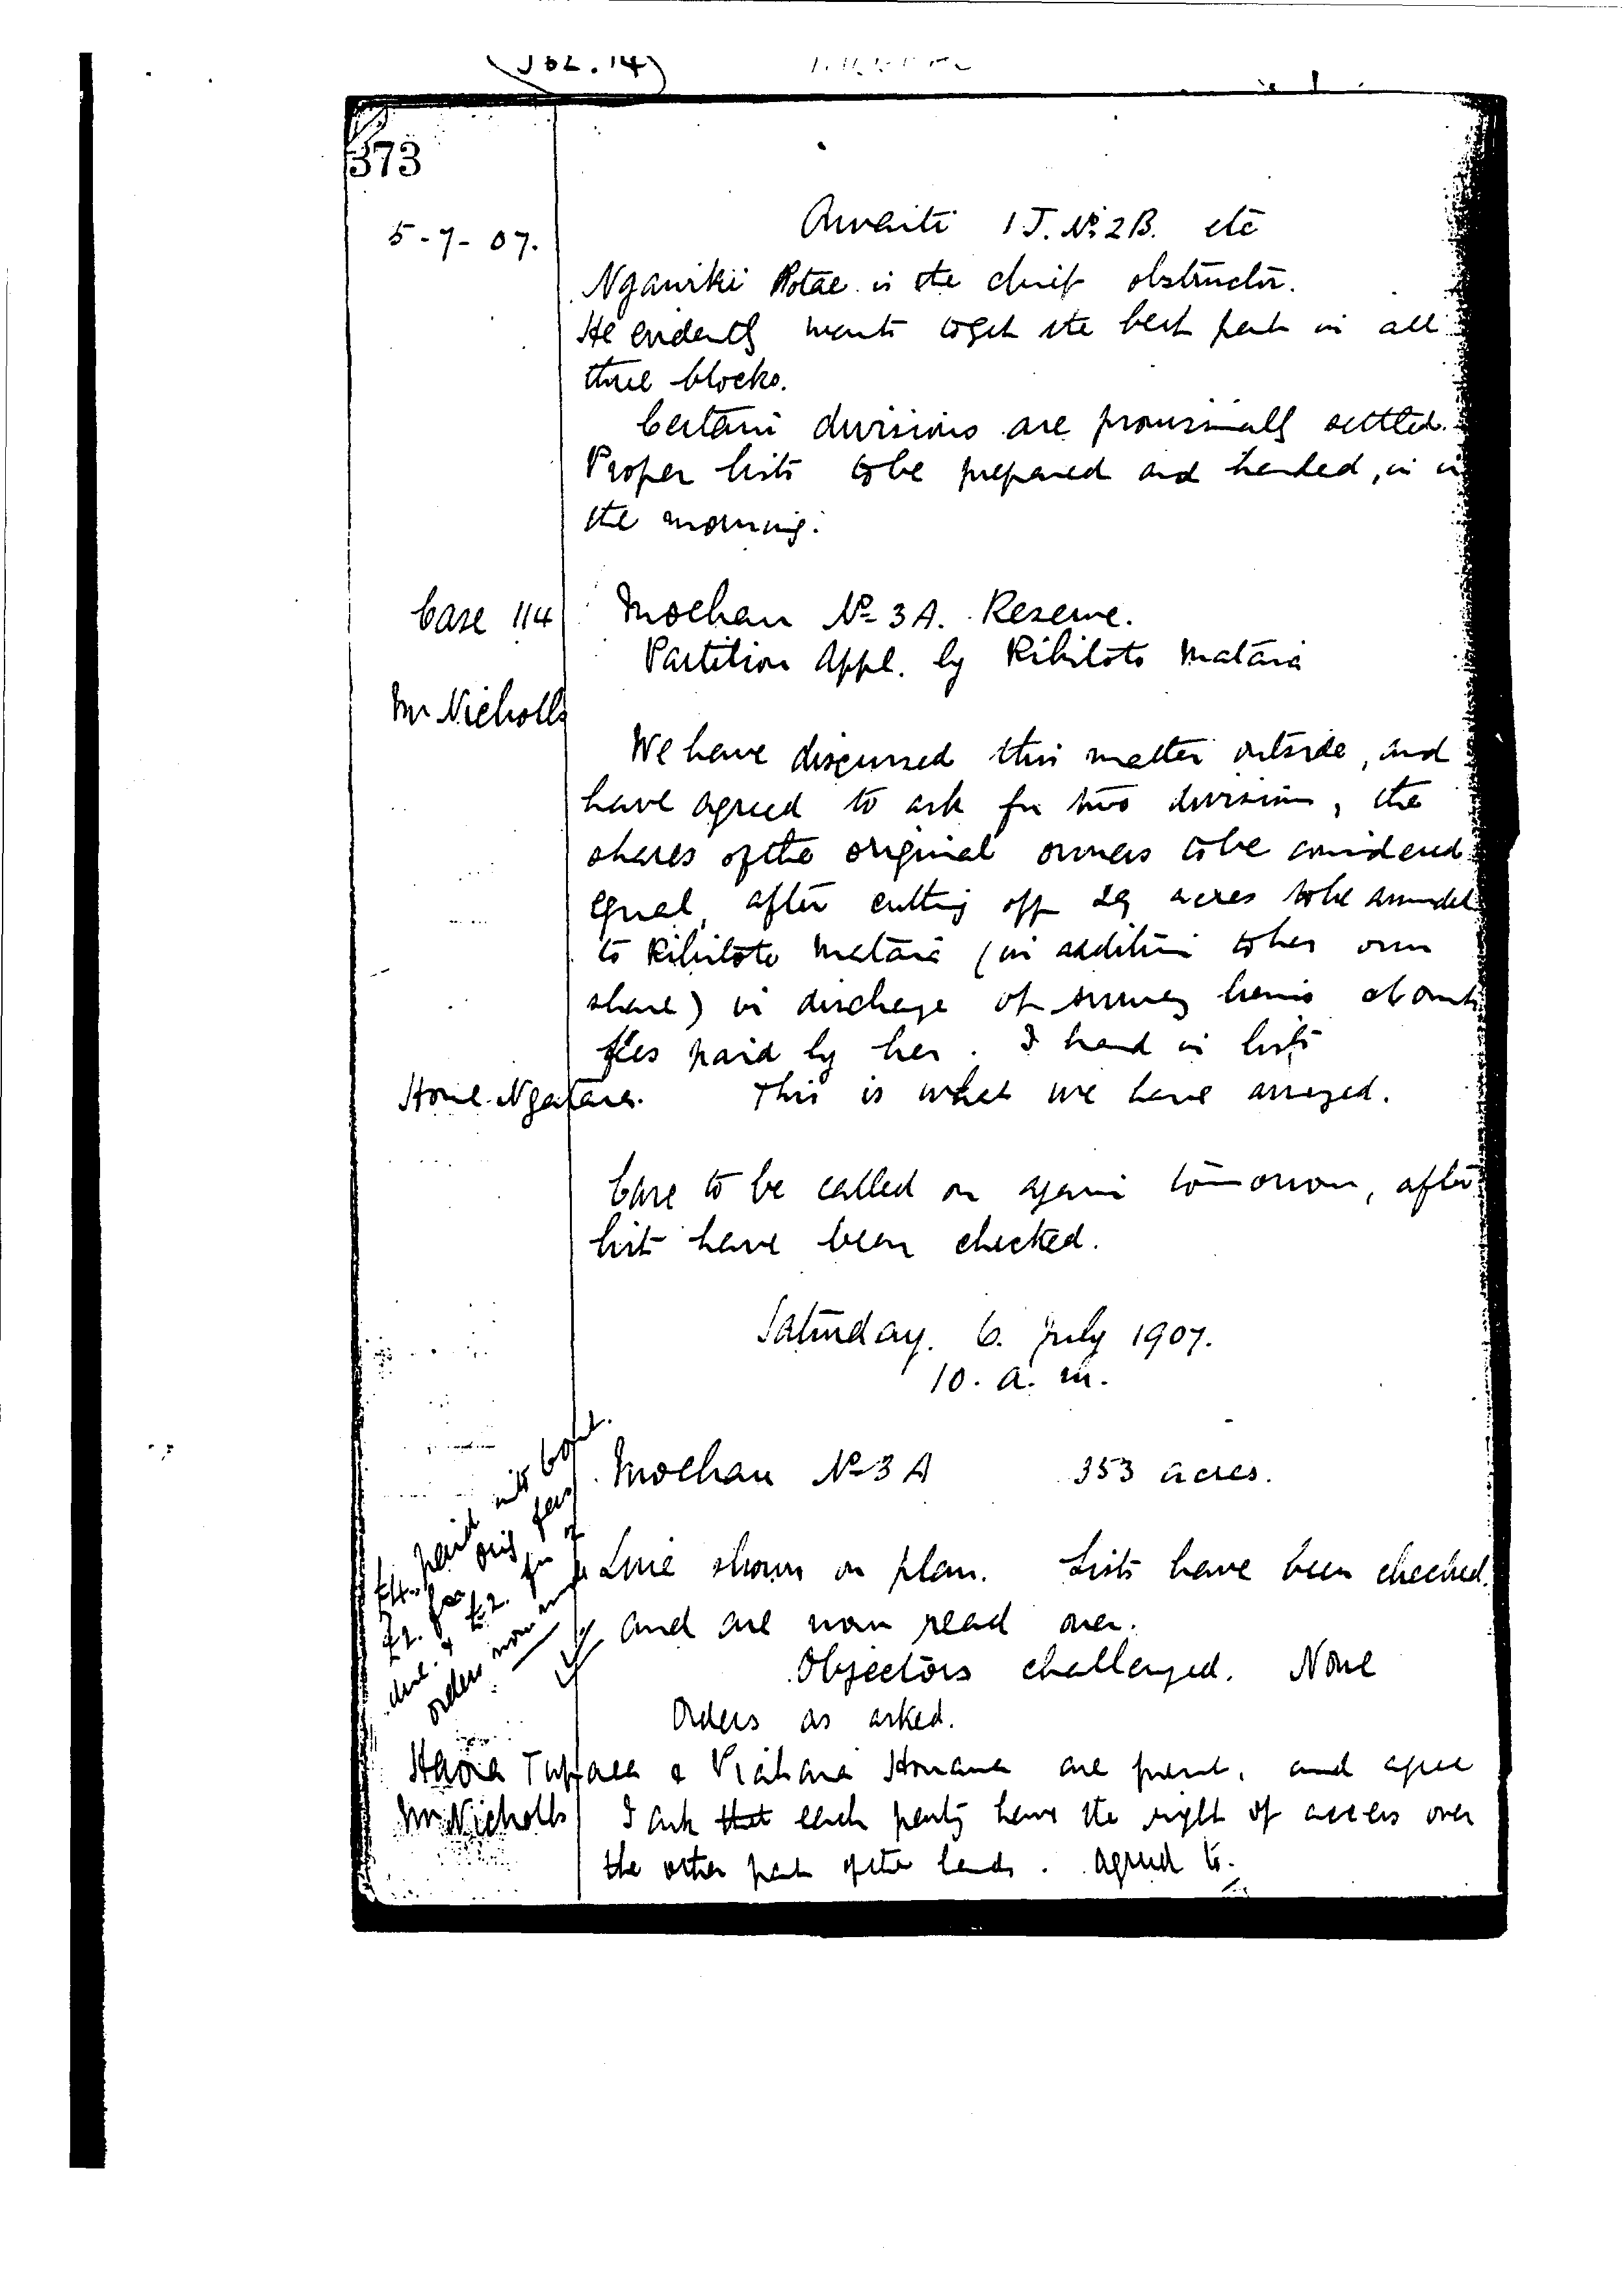 VOL. 14
373
5-7-07.
Awaiti 1J. No 2B. etc
Ngawiki Potae is the chief obstructor.
He evidently wants to get the best part in all
three blocks.
Certain divisions are provisionally settled.
Proper lists to be prepared and handed, in
the morning.
Case 114 Moehau No 3A. Reserve.
Partition Appl. by Rihitoto Mataia
Mr Nicholls
We have discussed this matter outside, and
have agreed to ask for two divisions, the
shares of the original owners to be considered
equal, after cutting off 29 acres to be awarded
to Rihitoto Mataia (in addition to her own
share) in discharge of survey liens & Court
fees paid by her. I hand in lists
Hone Ngatara. This is what we have arranged.
Case to be called on again tomorrow, after
lists have been checked.
Saturday. 6. July 1907.
10. a. m.
Moehau No 3A 353 acres.
£4. paid into Court.
£2. for orig fees
due. & £2. for
orders now made
Line shown on plan. Lists have been checked.
and are now read over.
Objectors challenged. None
Orders as asked.
Haora Tupaea & are present, and agree
Mr Nicholls I ask that each party have the right of access over
the other part of the lands. Agreed to.